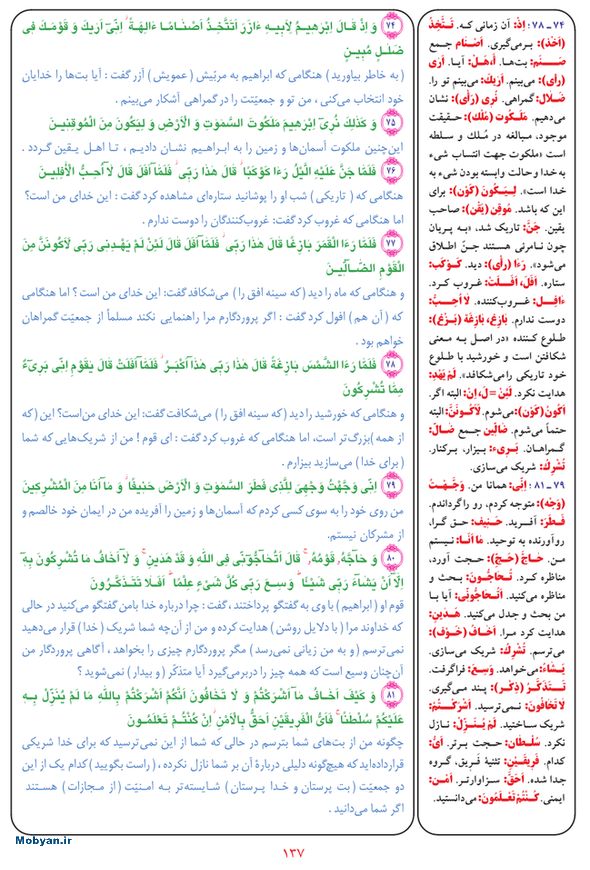 ۷۴ وَ اِذْ قالَ اِبْرهیمُ لِاَبیهِ ءازَرَ اَتَتَّخِذُ اَصْنامًا ءالِهَةً اِنّی اَرَیٰكَ وَ قَوْمَكَ فی
ضَلٰلٍ مُبینٍ
( به خاطر بیاورید ) هنگامی که ابراهیم به مربّیش ( عمویش ) آزر گفت : آیا بت‌ها را خدایان
خود انتخاب می‌کنی ، من تو و جمعیّتت را در گمراهی آشکار می‌بینم .
۷۵ وَ كَذٰلِكَ نُری اِبْرهیمَ مَلَكُوتَ السَّمٰوتِ وَ الْاَرْضِ وَ لِیَكُونَ مِنَ الْمُوقِنینَ
این‌چنین ملکوت آسمان‌ها و زمین را به ابراهیم نشان دادیم ، تا اهل یقین گردد .
۷۶ فَلَمّا جَنَّ عَلَیْهِ الَّیْلُ رَءا كَوْكَبًا قالَ هٰذا رَبّی فَلَمّا اَفَلَ قالَ لا اُحِبُّ الْافِلینَ
هنگامی که ( تاریکی ) شب او را پوشانید ستاره‌ای مشاهده کرد گفت : این خدای من است؟
اما هنگامی که غروب کرد گفت: غروب‌کنندگان را دوست ندارم .
۷۷ فَلَمّا رَءَا الْقَمَرَ بازِغًا قالَ هٰذا رَبّی فَلَمّا اَفَلَ قالَ لَئِنْ لَمْ یَهْدِنی رَبّی لَاَكُونَنَّ مِنَ
الْقَوْمِ الضّالّینَ
و هنگامی که ماه را دید (که سینه افق را ) می‌شکافد گفت: این خدای من است ؟ اما هنگامی
که ( آن هم ) افول کرد گفت : اگر پروردگارم مرا راهنمایی نکند مسلماً از جمعیّت گمراهان
خواهم بود .
۷۸ فَلَمّا رَءَا الشَّمْسَ بازِغَةً قالَ هٰذا رَبّی هٰذا اَكْبَرُ فَلَمّا اَفَلَتْ قالَ یٰقَوْمِ اِنّی بَریءٌ
مِمّا تُشْرِكُونَ
و هنگامی که خورشید را دید (که سینه افق را ) می‌شکافت گفت: این خدای من‌است؟ این (که
از همه )بزرگ‌تر است، اما هنگامی که غروب کرد گفت : ای قوم ! من از شریک‌هایی که شما
( برای خدا ) می‌سازید بیزارم .
۷۹ اِنّی وَجَّهْتُ وَجْهِیَ لِلَّذی فَطَرَ السَّمٰوتِ وَ الْاَرْضَ حَنیفًا وَ ما اَنَا مِنَ الْمُشْرِكینَ
من روی خود را به سوی کسی کردم که آسمان‌ها و زمین را آفریده من در ایمان خود خالصم و
از مشرکان نیستم.
۸۰ وَ حاجَّهُ قَوْمُهُ قالَ اَتُحاجُّونّی فِی اللهِ وَ قَدْ هَدٰینِ وَ لا اَخافُ ما تُشْرِكُونَ بِهِ
اِلّا اَنْ یَشاءَ رَبّی شَیْئًا وَسِعَ رَبّی كُلَّ شَیْءٍ عِلْمًا اَفَلا تَتَذَكَّرُونَ
قوم او ( ابراهیم ) با وی به گفتگو پرداختند ، گفت : چرا درباره خدا بامن گفتگو می‌کنید در حالی
که خداوند مرا ( با دلایل روشن ) هدایت کرده و من از آن‌چه شما شریک ( خدا ) قرار می‌دهید
نمی‌ترسم ( و به من زیانی نمی‌رسد ) مگر پروردگارم چیزی را بخواهد ، آگاهی پروردگار من
آن‌چنان وسیع است که همه چیز را دربرمی‌گیرد آیا متذکّر ( و بیدار ) نمی‌شوید ؟
۸۱ وَ كَیْفَ اَخافُ ما اَشْرَكْتُمْ وَ لا تَخافُونَ اَنَّكُمْ اَشْرَكْتُمْ بِاللهِ ما لَمْ یُنَزِّلْ بِهِ
عَلَیْكُمْ سُلْطٰنًا فَاَیُّ الْفَریقَیْنِ اَحَقُّ بِالْاَمْنِ اِنْ كُنْتُمْ تَعْلَمُونَ
چگونه من از بت‌های شما بترسم در حالی که شما از این نمی‌ترسید که برای خدا شریکی
قرارداده‌اید که هیچ‌گونه دلیلی دربارهٔ آن بر شما نازل نکرده ، ( راست بگویید ) کدام یک از این
دو جمعیّت ( بت پرستان و خدا پرستان ) شایسته‌تر به امنیّت ( از مجازات ) هستند
اگر شما می‌دانید .
۷۴ ـ ۷۸ : اِذْ: آن زمانی که. تَتَّخِذُ
(اَخَذَ): برمی‌گیری. اَصْنام جمع
صَنَم: بت‌ها، أ،هَلْ: آیـا. اَرٰی
(رأی): می‌بینم. اَرَیٰكَ: می‌بینم تو را.
ضَلال: گمراهی. نُری (رَأَی): نشان
می‌دهیم. مَلَكُوت (مُلْك): حقیقت
موجود، مبالغه در مُلک و سلطه
است «ملکوت جهت انتساب شیء
به خدا و حالت وابسته بودن شیء به
خدا است». لِیَكُونَ (كَوْن): برای
این که باشد. مُوقِن (یَقَن): صاحب
یقین. جَنَّ: تاریک شد، «به پریان
چون نامرئی هستند جنّ اطلاق
می‌شود». رَءا (رأی): دید. كَوْكَب:
ستاره. اَفَلَ، اَفَلَتْ: غروب کرد.
ءافِل: غروب‌کننده. لا اُحِبُّ:
دوست ندارم. بازِغ، بازِغَة (بَزَغَ):
طلوع کننده «در اصل به معنی
شکافتن است و خورشید با طلوع
خود تاریکی را می‌شکافد». لَمْ یَهْدِ:
هدایت نکرد. لَئِنْ = لَ، اِنْ: البته اگر.
اَكُونُ (كَوْن): می‌شوم. لَاَكُونَنَّ: البته
حتماً می‌شوم. ضالّین جمع ضالّ:
گمراهان. بَریء: بیزار، برکنار.
تُشْرِكُ: شریک می‌سازی.
۷۹ ـ ۸۱ : اِنّی: همانا من. وَجَّهْتُ
(وَجْه): متوجه کردم، رو را گرداندم.
فَطَرَ: آفرید. حَنیف: حق گـرا،
روآورنده به توحید. ما اَنَا: نیستم
من. حاجَّ (حَجّ): حجت آورد،
مناظره کرد. تُحاجُّونَ: بحث و
مناظره می‌کنید. اَتُحاجُّونّی: آیا با
من بحث و جدل می‌کنید. هَدٰینِ:
هدایت کرد مـرا. اَخافُ (خَوْف):
می‌ترسم. تُشْرِكُ: شریک می‌سازی.
یَشاءُ: می‌خواهد. وَسِعَ: فراگرفت.
تَتَذَكَّرُ (ذِكْر): پند می‌گیری.
لا تَخافُونَ: نمی‌ترسید. اَشْرَكْتُمْ:
شریک ساختید. لَمْ یُنَزِّلْ: نازل
نکرد. سُلْطان: حجت برتر. اَیُّ:
کدام. فَریقَیْنِ: تثنیهٔ فریق، گروه
جدا شده. اَحَقُّ: سزاوارتر. اَمْن:
ایمنی. كُنْتُمْ تَعْلَمُونَ: می‌دانستید.
Mobyan.ir
۱۳۷